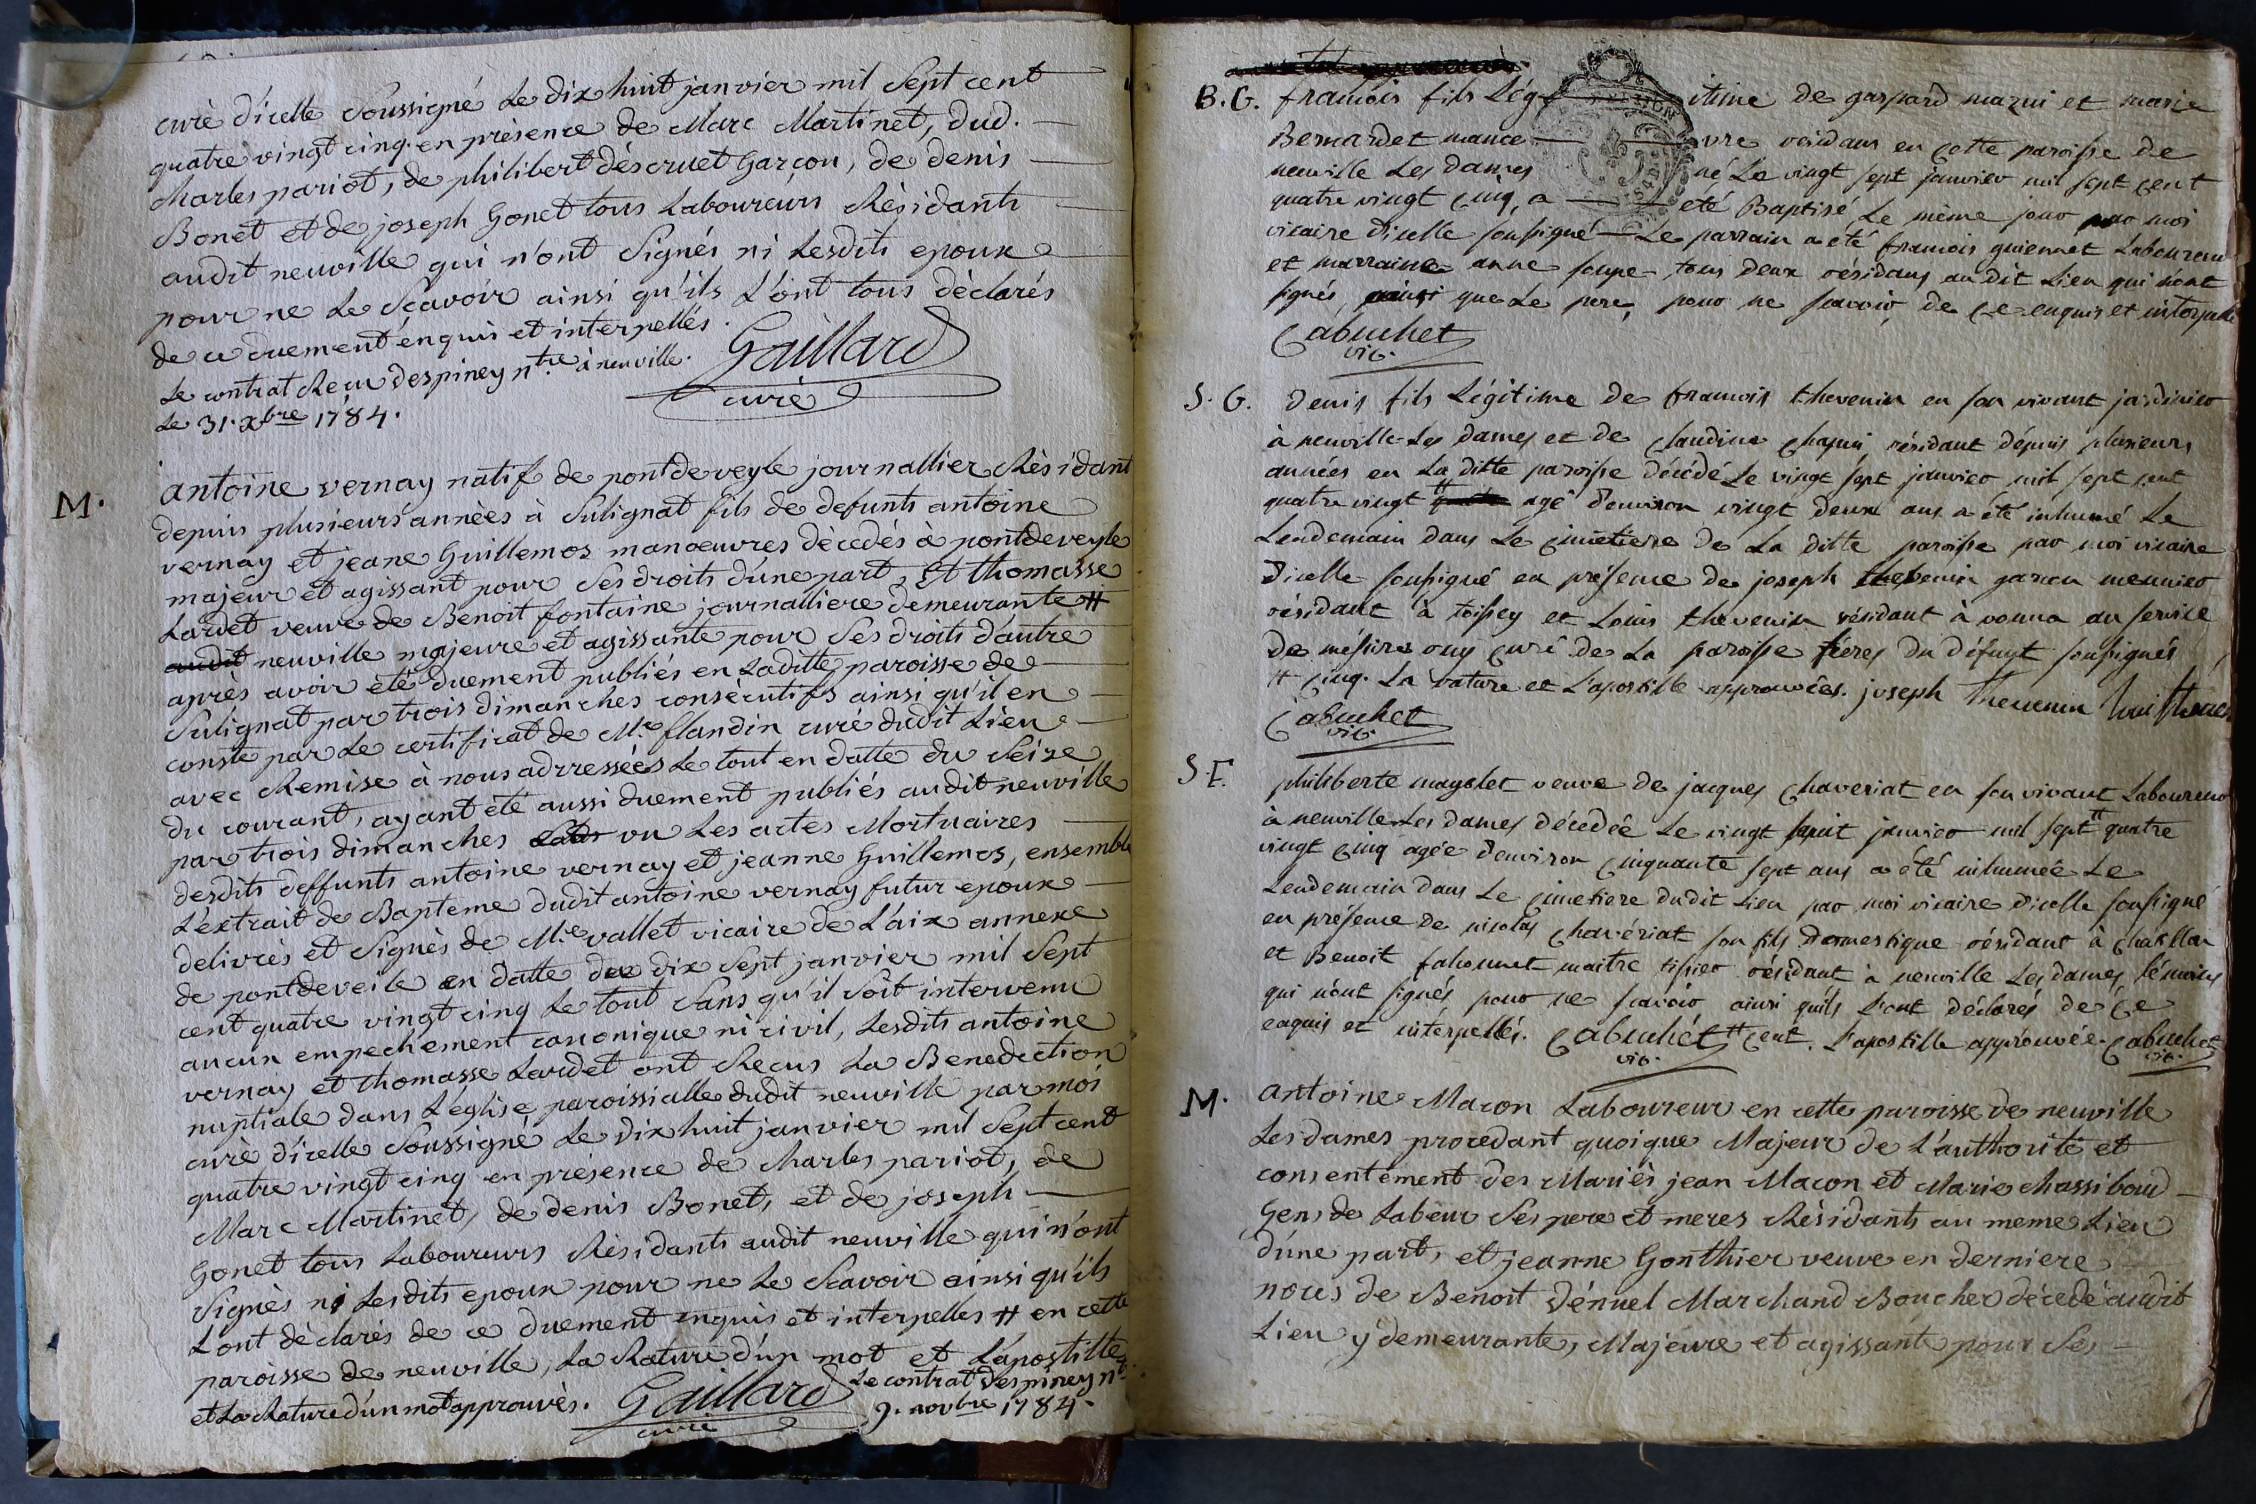 curé d'icelle soussigné le dix huit janvier mil sept cent
quatre vingt cinq en prèsence de Marc Martinet, dud.
Charles pariot, de philibert dèscruet Garçon, de denis
Bonet et de joseph Gonet tous Laboureurs Rèsidants
audit neuville qui n'ont signés ni lesdits epoux
pour ne le sçavoir ainsi qu'ils l'ont tous dèclarés
de ce duement enquis et interpellés.
Le contrat Recu despiney ntre à neuville. Gaillard
Le 31. Xbre 1784. curé
M. antoine vernay natif de pontdeveyle journallier Rèsidant
depuis plusieurs annèes à Sulignat fils de defunts antoine
vernay et jeane Guillemos manoeuvres dècedès à pontdeveyle
majeur et agissant pour ses droits d'une part, Et thomasse
Lardet veuve de Benoit fontaine journalliere demeurante #
audit neuville majeure et agissante pour ses droits d'autre
après avoir èté duement publiés en Laditte paroisse de
Sulignat par trois dimanches consècutifs ainsi qu'il en
conste par Le certificat de Mre flandin curé dudit Lieu
avec Remise à nous adrressèés Le tout en datte du seize
du courant, ayant été aussi duement publiés audit neuville
par trois dimanches vu Les actes Mortuaires
desdits deffunts antoine vernay et jeanne Guillemos, ensemble
L'extrait de Bapteme dudit antoine vernay futur epoux
delivrés et signès de Mre vallet vicaire de L'aix annexe
de pontdeveile en datte du dix sept janvier mil sept
cent quatre vingt cinq Le tout sans qu'il soit intervenu
aucun empechement canonique ni civil, Lesdits antoine
vernay et thomasse Lardet ont Recus La Benediction
nuptiale dans L'église paroissialle dudit neuville par moi
curè d'icelle soussigné Le dix huit janvier mil sept cent
quatre vingt cinq en présence de Charles pariot, de
Marc Martinet, de denis Bonet, et de joseph
Gonet tous Laboureurs Rèsidants audit neuville qui n'ont
signès ni Lesdits epoux pour ne Le sçavoir ainsi qu'ils
L'ont dèclarés de ce duement enquis et interpelles # en cette
paroisse de neuville, La Rature d'un mot et L'apostille
et La Rature d'un mot approuvès. Gaillard Le contrat despiney nre
curé 9. novbre 1784.
B.G. francois fils Légitime de gaspard mazui et marie
Bernardet manoeuvre résidans en cette paroisse de
neuville Les dames né Le vingt sept janvier mil sept cent
quatre vingt cinq, a eté Baptisé Le même jour par moi
vicaire d'icelle soussigné Le parrain a été francois guiennet Laboureur
et marraine anne soupe tous deux résidans au dit Lieu qui n'ont
signés, ainsi que Le pere, pour ne scavoir de ce enquis et interpellé
Cabuchet
vic.
S. G. Denis fils Légitime de francois thevenin en son vivant jardinier
à neuville-Les dames et de Claudine Chapui résidant dépuis plusieurs
années en La ditte paroisse décédé Le vingt sept janvier mil sept cent
quatre vingt # agé d'environ vingt deux ans a été inhumé Le
Lendemain dans Le cimetiere de La ditte paroisse par moi vicaire
d'icelle soussigné en présence de joseph thevenin garcon meunier
résidant à toissey et Louis thevenin résidant à vonna au service
De messire ony curé de La paroisse fréres du défunt soussignés
# cinq. La rature et L'apostille approuvées. joseph Thevenin
Cabuchet
vic.
S.F. philiberte mayelet veuve de jacques Chaveriat en son vivant Laboureur
à neuville Les dames décédée Le vingt janvier mil sept # quatre
vingt cinq agée d'environ cinquante sept ans a été inhumée Le
Lendemain dans Le cimetiere dudit Lieu par moi vicaire d'icelle soussigné
en présence de nicolas Chavériat son fils Domestique résidant à Chatillon
et Benoit fahonnet maitre tissier résidant à neuville Les dames témoins
qui n'ont signés pour ne scavoir ainsi qu'ils L'ont déclarés de ce
enquis et interpellés. Cabuchet # cent. L'apostille approuvée. Cabuchet
vic. vic.
M. Antoine Macon Laboureur en cette paroisse de neuville
Les dames procedant quoique Majeur de L'authorité et
consentement des Mariés jean Macon et Marie Chassiboud
Gens de Labeur Ses pere et meres Rèsidants au meme Lieu
d'une part, et jeanne Gonthier veuve en derniere
noces de Benoit Dénuel Marchand Boucher décedé audit
Lieu y demeurante, Majeure et agissante pour ses